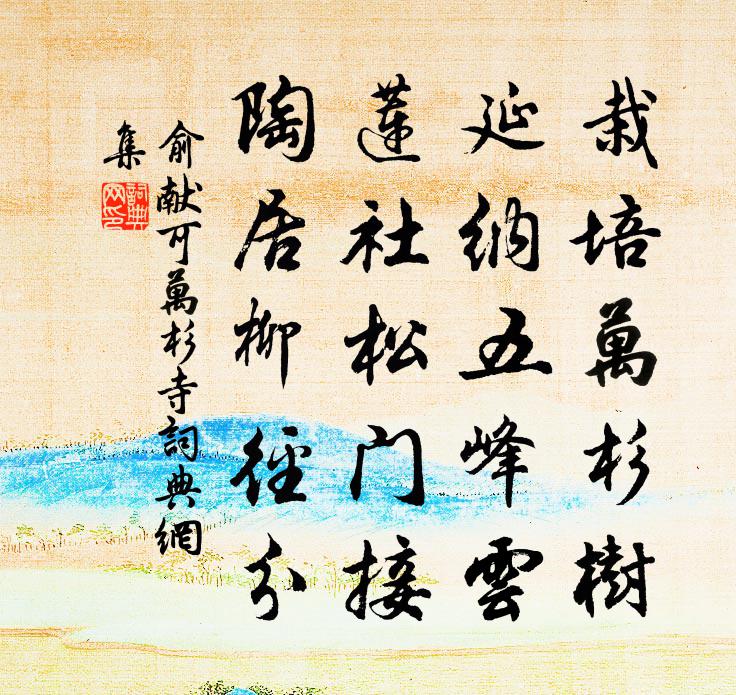 栽培萬杉樹
延納五峰雲
蓮社松门接
陶居柳徑分
俞献可萬杉寺詞典網
集
詞典网印